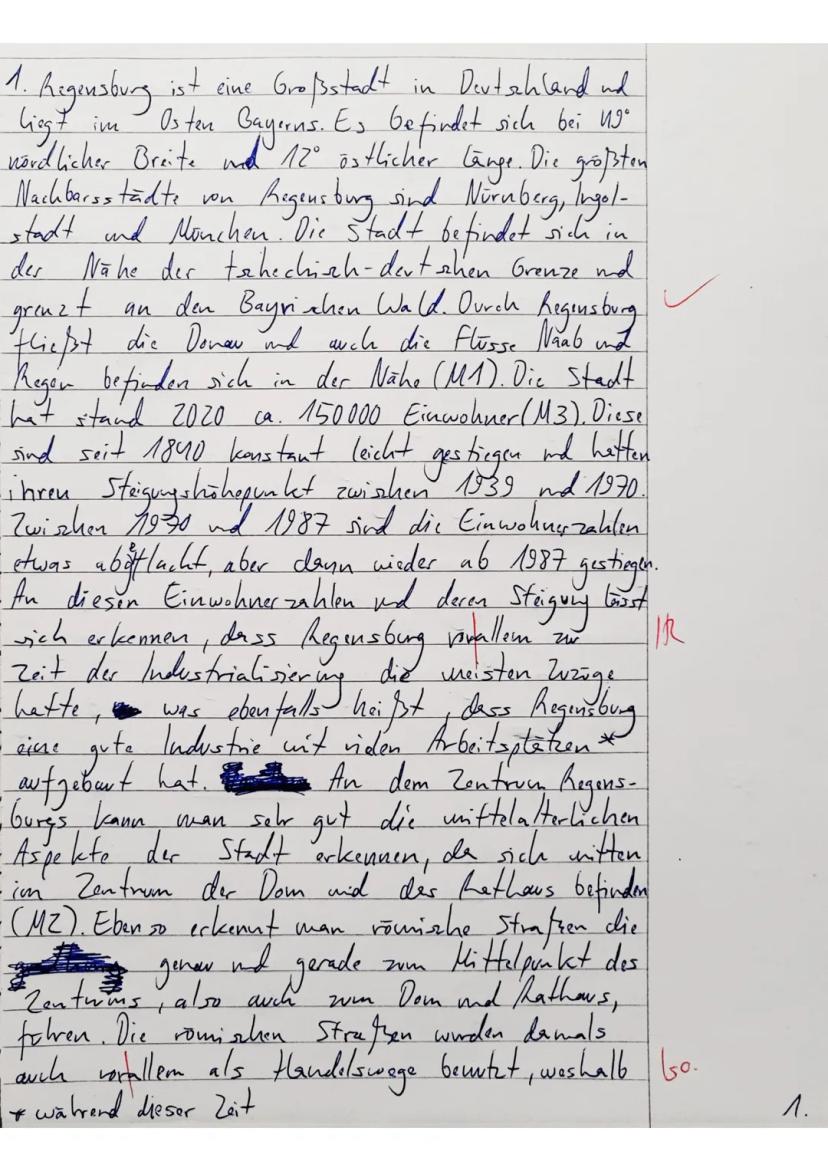 1. Regensburg ist eine Großstadt in Deutschland und
liegt im Osten Bayerns. Es befindet sich bei 49°
nördlicher Breite und 12° östlicher Länge. Die größten
Nachbarsstädte von Regensburg sind Nürnberg, Ingol-
stadt und München. Die Stadt befindet sich in
der Nähe der tschechisch-deutschen Grenze und
grenzt an den Bayrischen Wald. Durch Regensburg
fließt die Donau und auch die Flüsse Naab und
Regen befinden sich in der Nähe (M1). Die Stadt
hat stand 2020 ca. 150000 Einwohner (M3). Diese
sind seit 1840 konstant leicht gestiegen und hatten
ihren Steigungshöhepunkt zwischen 1939 und 1970.
Zwischen 1970 und 1987 sind die Einwohnerzahlen
etwas abgeflacht, aber dann wieder ab 1987 gestiegen.
An diesen Einwohnerzahlen und deren Steigung lässt
sich erkennen, dass Regensburg vorallem zur R
Zeit der Industrialisierung die meisten Zuzüge
hatte, was ebenfalls heißt, dass Regensburg
eine gute Industrie mit vielen Arbeitsplätzen *
aufgebaut hat. An dem Zentrum Regens-
burgs kann man sehr gut die mittelalterlichen
Aspekte der Stadt erkennen, da sich mitten
im Zentrum der Dom und das Rathaus befinden
(M2). Ebenso erkennt man römische Straßen die
genau und gerade zum Mittelpunkt des
Zentrums, also auch zum Dom und Rathaus,
führen. Die römischen Straßen wurden damals
auch vorallem als Handelswege benutzt, weshalb so.
* während dieser Zeit
1.